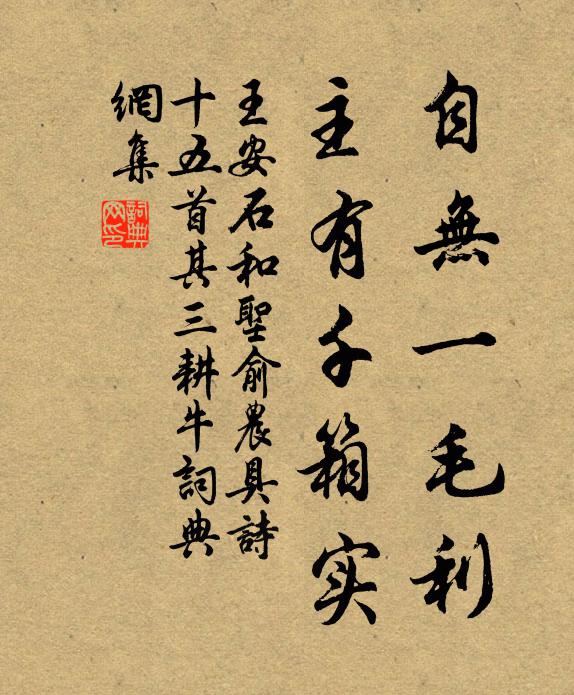 自無一毛利
主有千箱实
王安石和聖俞農具詩
十五首其三耕牛詞典
網集
詞典
网印